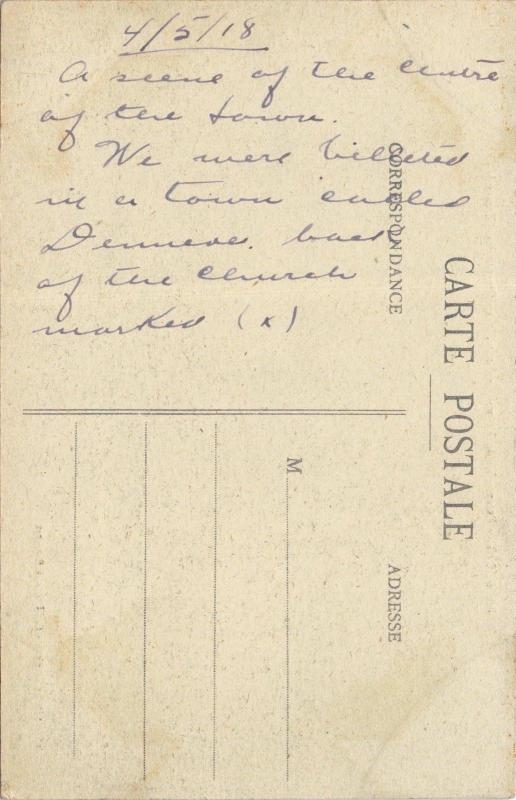 4/5/18
A scene of the centre
of the town.
We were billeted
in a town called
back
of the church
marked (x)
CORRESPONDANCE
CARTE POSTALE
M
ADRESSE